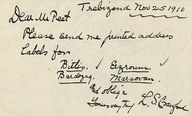 Trebizond Nov 25 1910
Dear Mr Peet
Please send me printed address
labels for:
Bitlis, Erzroom
Bardezag, Marsovan
College
Yours truly L. S. Crawford